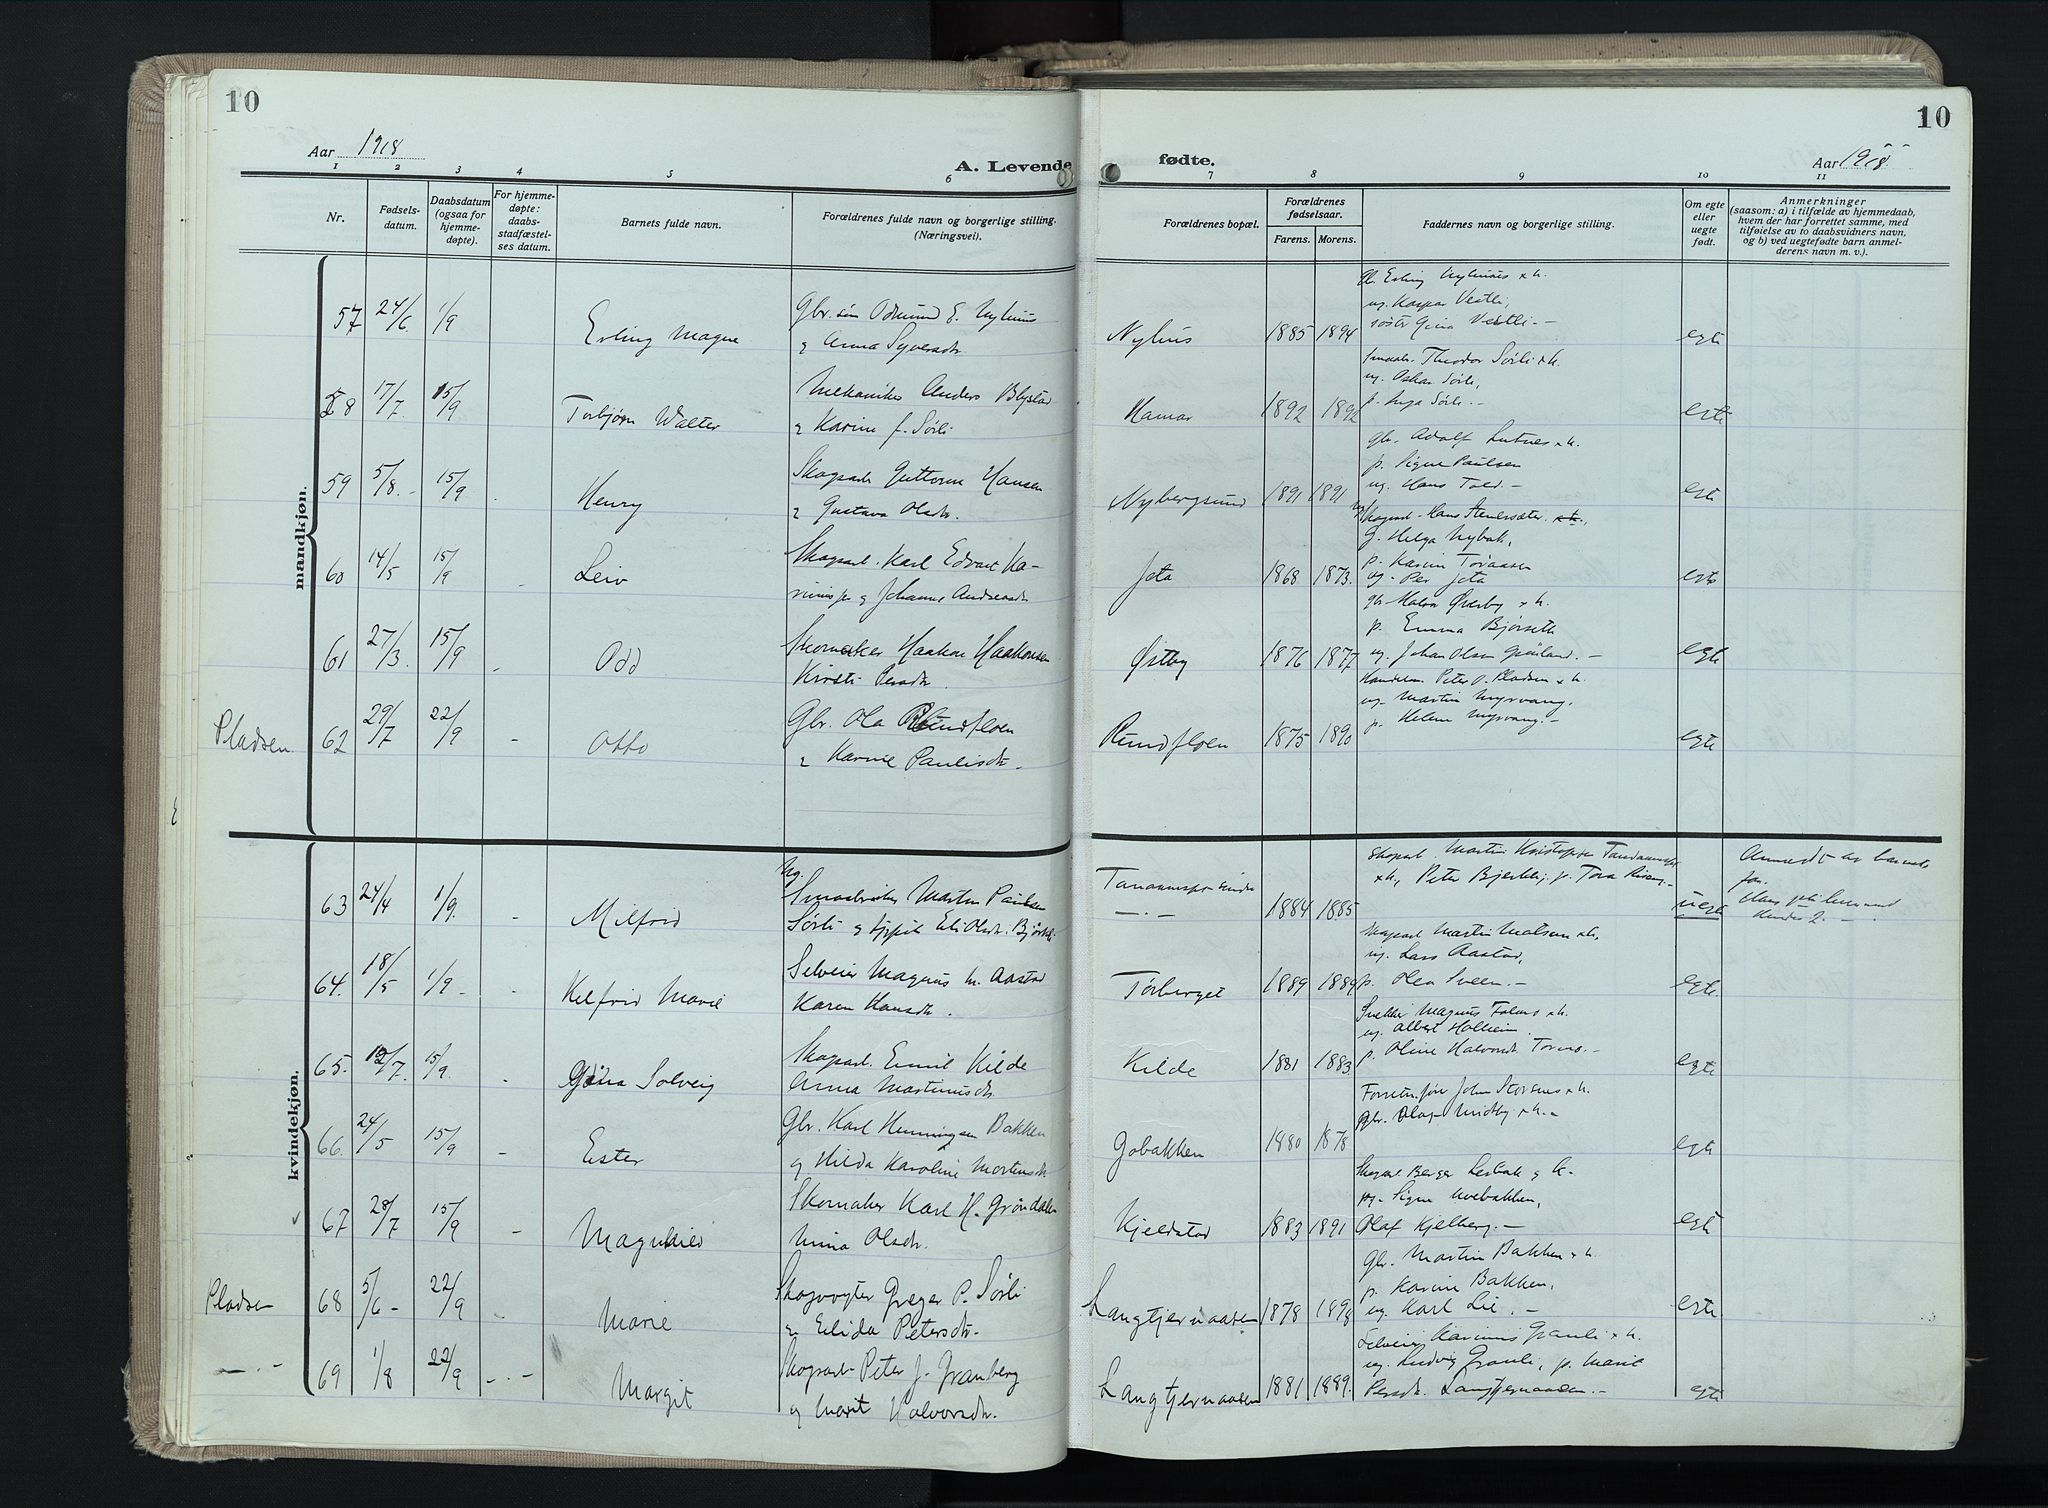 10
Aar 1918
A. Levende
1 2 3 4 5 6
Nr.
Fødsels-
datum.
Daabsdatum
(ogsaa for
hjemme-
døpte).
For hjemme-
døpte:
daabs-
stadfæstel-
ses datum.
Barnets fulde navn.
Forældrenes fulde navn og borgerlige stilling.
(Næringsvei).
mandkjøn.
57 24/6 1/9 Erling Magne
Gbr. søn Odmund E. Nyhus
og Anna Syversdtr.
58 17/7. 15/9 Torbjørn Walter
Mekaniker Anders Blystad
og Karine f. Sørli
59 5/8. - 15/9 Henry
Skogsarb. Guttorm Hansen
og Gustava Olsdtr.
60 14/5 15/9 - Leiv
Skogsarb. Karl Edvart Ka-
og Johanne Andreasdtr
61 27/3. 15/9 - Odd
Skomaker Haakon Haakonsen
Kirsti Persdtr.
Pladsen 62 29/7 22/9 - Otto
Gbr. Ola Rundfloen
og Karnie Paulisdtr.
kvindekjøn.
63 24/4 1/9. - Milfrid
Ug.
Smaabruker Martin Paulsen
Sørli og Eli Olsdtr.
64. 18/5 1/9 - - Kelfrid Marie
Selveier Magnus M. Aastad
Karen Hansdtr.
65. 12/7. 15/9. - Gøta Solveig
Skogsarb. Emil Kilde
Anna Martinusdtr.
66. 24/5 15/9 - Ester
Gbr. Karl Henningsen Bakken
og Hilda Karoline Mortensdtr
67 28/7 15/9 - Magnhild
Skomaker Karl H. Grøndalen
Mina Olsdtr.
Pladsen 68 5/6 - 22/9 - Marie
Skogvogter Greger P. Sørli
og Elida Petersdtr.
-"- 69 1/8 22/9 -"- Margit
Skogsarb. Peter J. Granberg
og Marit Halvorsdtr.
10
fødte.
Aar 1918.
7 8 9 10 11
Forældrenes bopæl.
Forældrenes
fødselsaar.
Farens. Morens.
Faddernes navn og borgerlige stilling.
Om egte
eller
uegte
født.
Anmerkninger
(saasom: a) i tilfælde av hjemmedaab,
hvem der har forrettet samme, med
tilføielse av to daabsvidners navn,
og b) ved uegtefødte barn anmel-
derens navn m. v.).
Nyhus 1885 1894 egte
Erling Nyhuus x h.
ug. Kaspar Vestli,
søster Gina Vestli. -
Hamar 1892 1892 egte
Theodor Sørli x h.
ug. Oskar Sørli,
p. Inga Sørli. -
Nybergsund 1891 1891 egte
gbr. Adolf Lutnes x h.
p. Signe Paulsen
ug. Hans -
Jota 1868 1873. egte
Skogsarb. Hans
G. Helga Nybak,
p. Karin Toraasen
ug. Per Jota
Østby 1876 1877 egte
gbr x h.
p. Emma Bjørseth
ug. Johan Olsen -
Rundfloen 1875 1890 egte
Handelsm. Peter O. Pladsen x h.
ug. Martin Myrvang,
p. Helene Myrvang. -
-"- 1884 1885 uegte
Skogsarb. Martin Kristoffer
x h., Peter p. Tora
Anmeldt av barnets
far.
Torberget 1889 1889 egte.
Skogsarb. Martin x h.,
ug. Lars Aastad,
p. Olea Sveen. -
Kilde 1881 1883 egte
Snekker Magnus x h.
ug. Albert Holheim.
p. Oline Halvorsdtr. -
Gobakken 1880 1878 egte
John x h.
gbr. Olaf x h. -
Kjeldstad 1883 1891 egte
Berger og h.
Signe
Olaf Kjelberg. -
Langtjernaasen 1878 1898 egte
Gbr. Martin Bakken x h.
p. Karine Bakken,
ug. Karl Lie. -
Langtjernaasen 1881 1889. egte
Selveier Karinus Granli x h.
ug. Ludvig Granli, p. Marit
Persdtr. Langtjernaasen. -